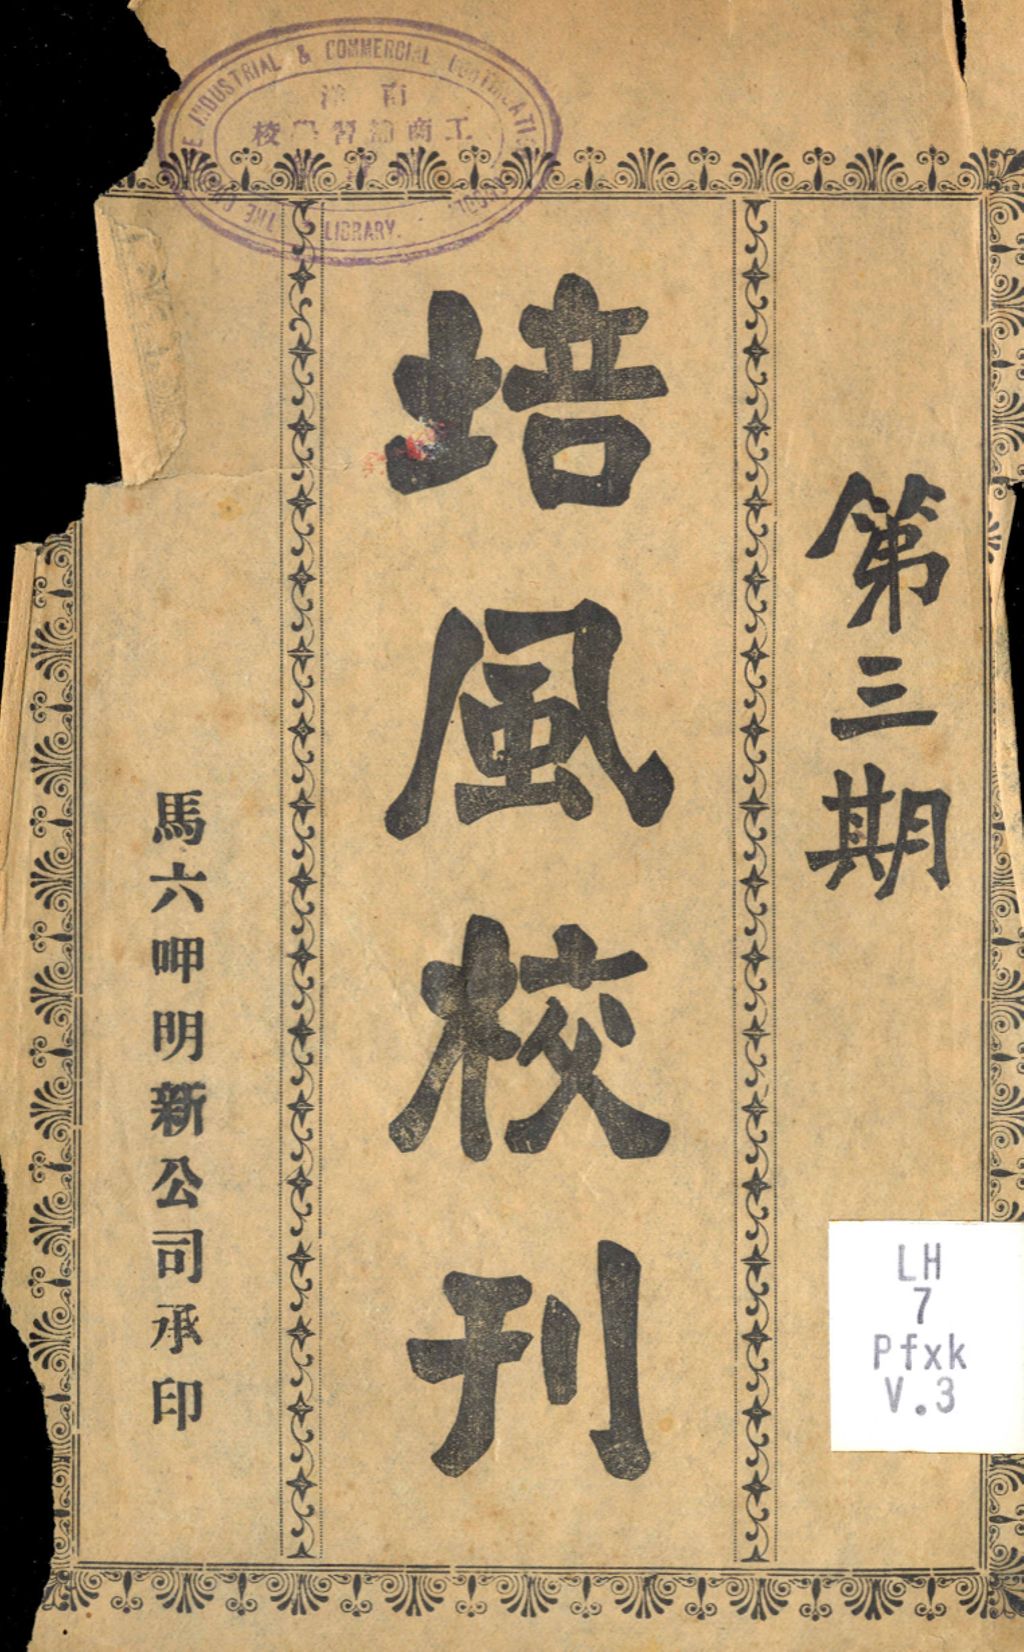 第三期
培風校刊
馬六呷明新公司承印
INDUSTRIAL & COMMERCIAL
南洋
工商補習學校
LIBRARY.
LH
7
Pfxk
V.3